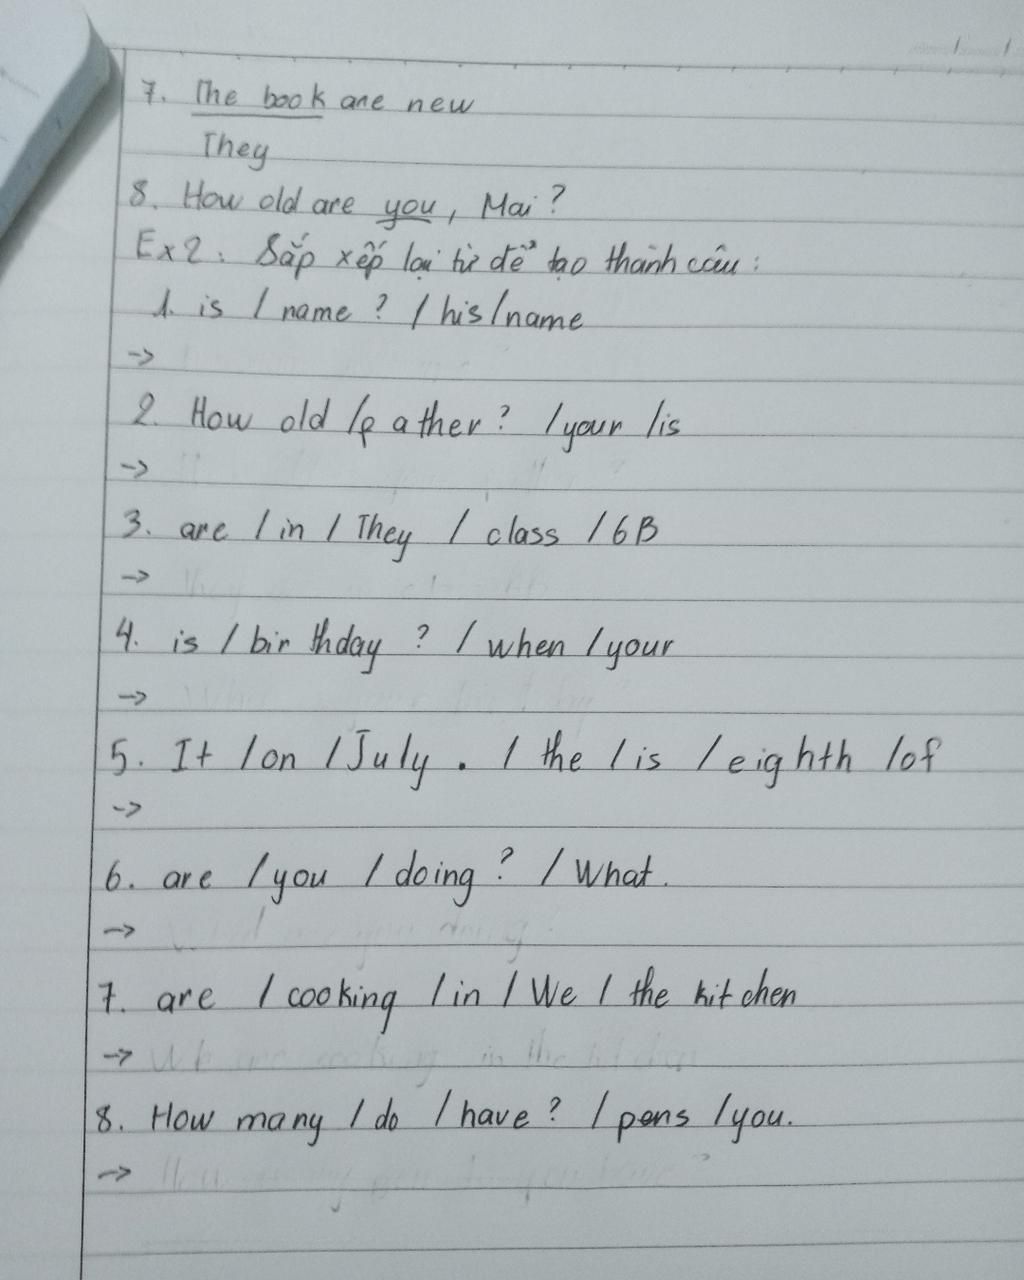 7. The book are new
They
8. How old are you, Mai?
Ex2: Sắp xếp lại từ để tạo thành câu:
1. is / name? / his/name
->
2. How old /f ather? /your /is
->
3. are / in / They / class / 6B
->
4. is / bir thday ? / when / your
->
5. It / on / July . / the / is / eighth /of
->
6. are / you / doing? / What.
->
7. are / cooking / in / We / the kitchen
-> We are cooking in the kitchen
8. How many / do / have? / pens /you.
->